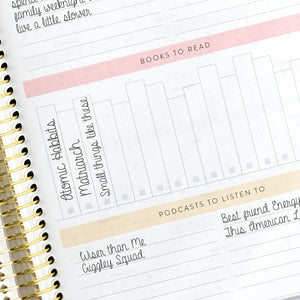 family weeknight
live a little slower
BOOKS TO READ
Atomic Habits
Matriarch
Small things like these
PODCASTS TO LISTEN TO
Wiser than Me
Giggley Squad
Best friend Energy
This American